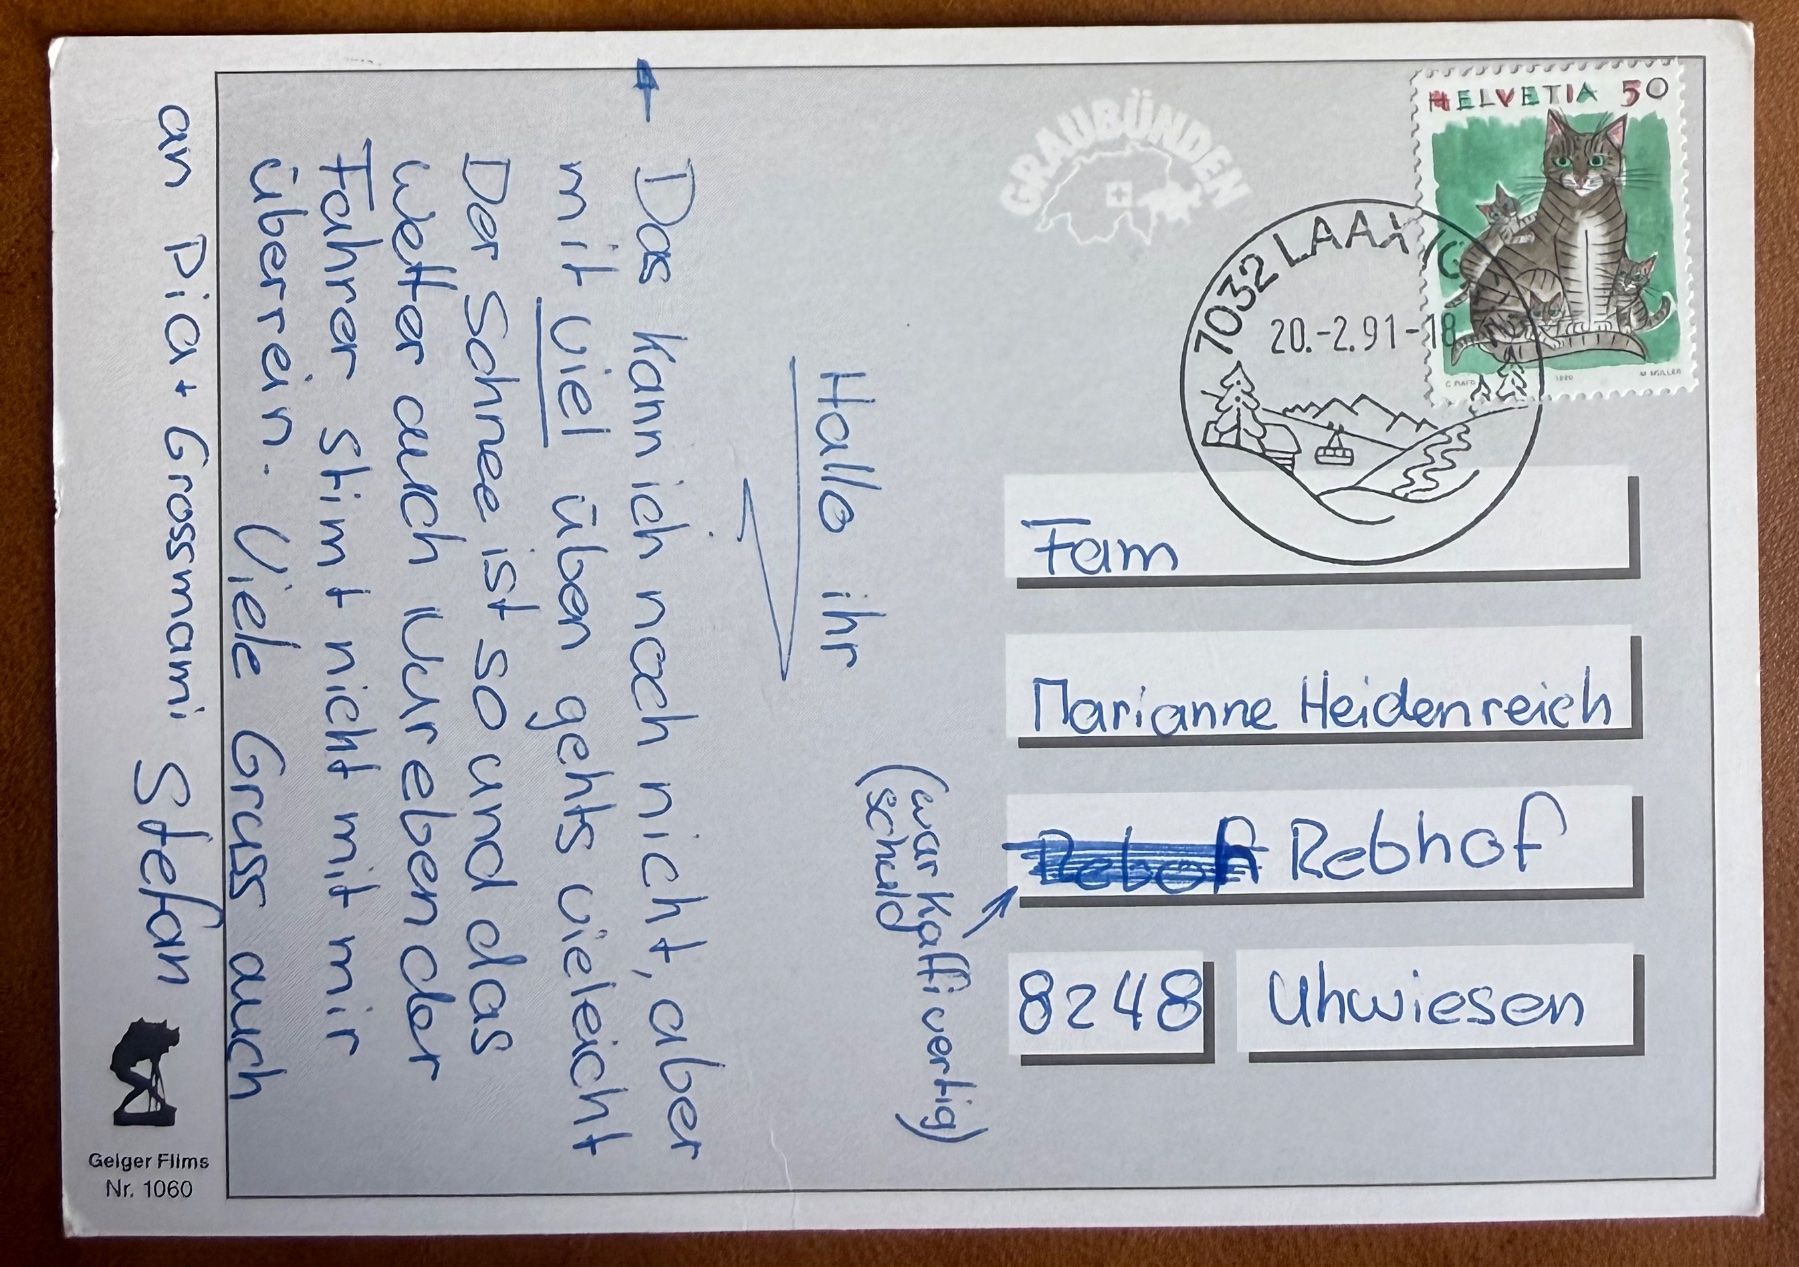 HELVETIA 50
C. PIATTI 1990 M. MÜLLER
GRAUBÜNDEN
7032 LAAX
20.-2.91-18
Hallo ihr
Das kann ich noch nicht, aber
mit viel üben gehts vieleicht
Der Schnee ist so und das
Wetter auch nur eben der
Fahrer stimt nicht mit mir
überrein. Viele Gruss auch
an Pia + Grossmami Stefan
Fam
Marianne Heidenreich
Rebhof
8248 Uhwiesen
(war kaffivertig
schuld)
Geiger Films
Nr. 1060